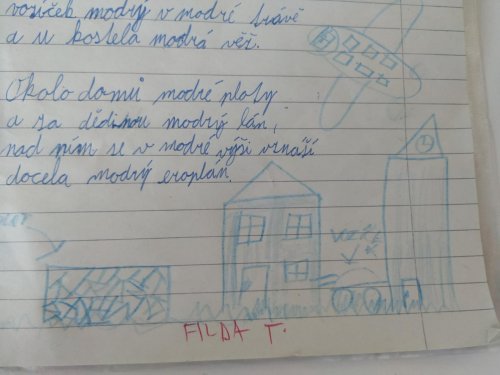 vozíček modrý v modré trávě
a u kostela modrá věž.
Okolo domů modré ploty
a za dědinou modrý lán,
nad ním se v modré výši vznáší
docela modrý eroplán.
FILDA T.